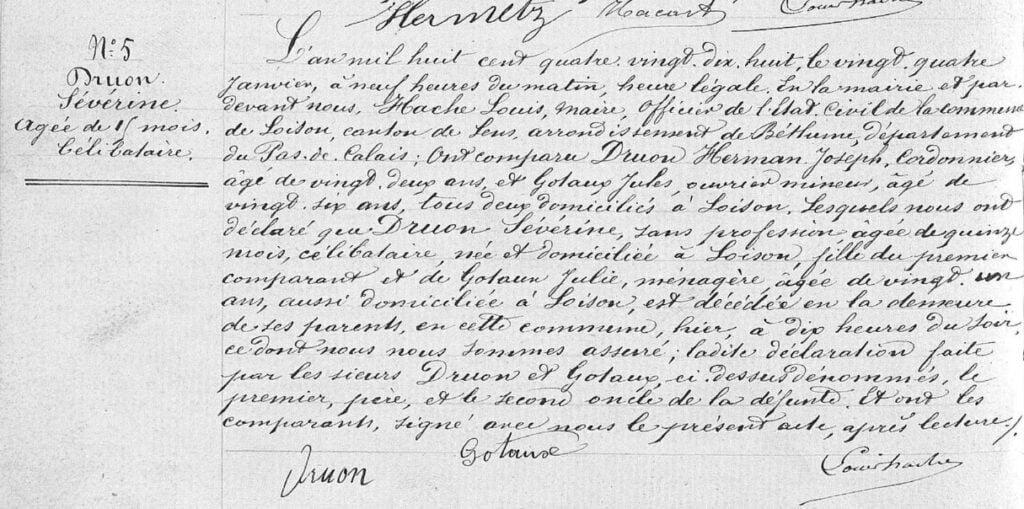 Hermetz Macart Louis Hache
N° 5
Druon
Sévérine
Agée de 15 mois.
Célibataire.
L'an mil huit cent quatre vingt dix huit, le vingt quatre
Janvier, à neuf heures du matin, heure légale. En la mairie et par
devant nous, Hache Louis, maire, Officier de l'Etat Civil de la commune
de Loison, canton de Lens, arrondissement de Béthune, département
du Pas-de-Calais; Ont comparu Druon Herman Joseph, Cordonnier,
âgé de vingt deux ans, et Gotaux Jules, ouvrier mineur, âgé de
vingt six ans, tous deux domiciliés à Loison. Lesquels nous ont
déclaré que Druon Sévérine, sans profession âgée de quinze
mois, célibataire, née et domiciliée à Loison, fille du premier
comparant et de Gotaux Julie, ménagère âgée de vingt un
ans, aussi domiciliée à Loison, est décédée en la demeure
de ses parents, en cette commune, hier, à dix heures du soir,
ce dont nous nous sommes assuré; ladite déclaration faite
par les sieurs Druon et Gotaux, ci-dessus dénommés, le
premier, père, et le second oncle de la défunte. Et ont les
comparants, signé avec nous le présent acte, après lecture./.
Druon Gotaux Louis Hache